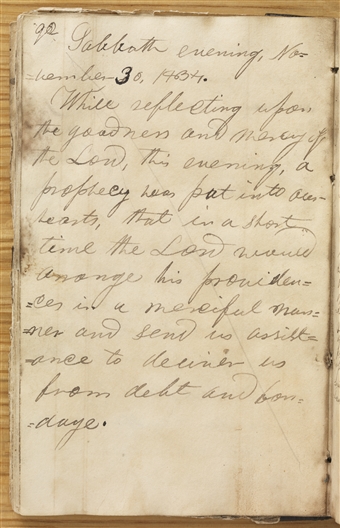 92
Sabbath evening, No=
=vember 30, 1834.
While reflecting upon
the goodness and mercy of
the Lord, this evening, a
prophecy was put into our
hearts, that in a short
time the Lord would
arrange his providen=
=ces in a merciful man=
=ner and send us assist=
=ance to deliver us
from debt and bon=
=dage.